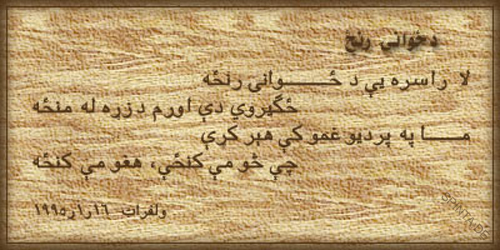 د ځوانۍ رنځ
لا راسره يې د ځوانۍ رنځه
ځګيروي دې اورم د زړه له منځه
ما په پرديو غمو کې هېر کړې
چې څو مې کنځې، هغو مې کنځه
ولفرات ١٦ر١ر١٩٩٥